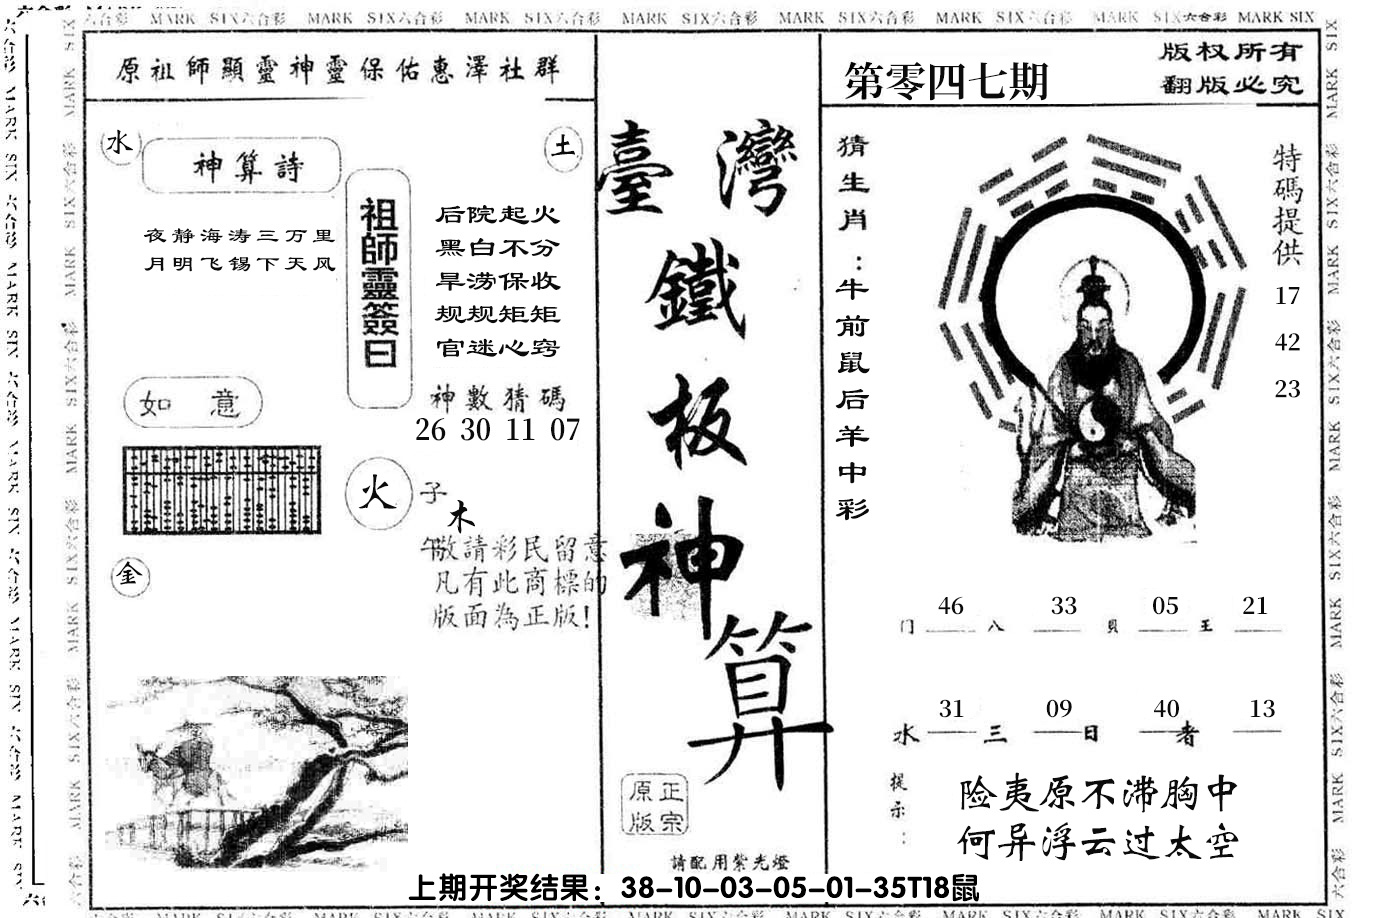 六合彩 MARK SIX六合彩 MARK SIX六合彩 MARK SIX六合彩 MARK SIX六合彩 MARK SIX六合彩 MARK SIX六合彩 MARK SIX六合彩 MARK SIX
原祖師顯靈神靈保佑惠澤社群
水
神算詩
土
夜静海涛三万里
月明飞锡下天风
祖師靈簽曰
后院起火
黑白不分
旱涝保收
规规矩矩
官迷心窍
神數猜碼
26 30 11 07
如 意
火
子
木
午
金
敬請彩民留意
凡有此商標的
版面為正版!
臺灣
鐵
板
神
算
正宗
原版
請配用紫光燈
第零四七期
版权所有
翻版必究
猜生肖:牛前鼠后羊中彩
特碼提供
17
42
23
46 33 05 21
门 八 貝 王
31 09 40 13
水 三 日 者
提示:
险夷原不滞胸中
何异浮云过太空
上期开奖结果：38-10-03-05-01-35T18鼠